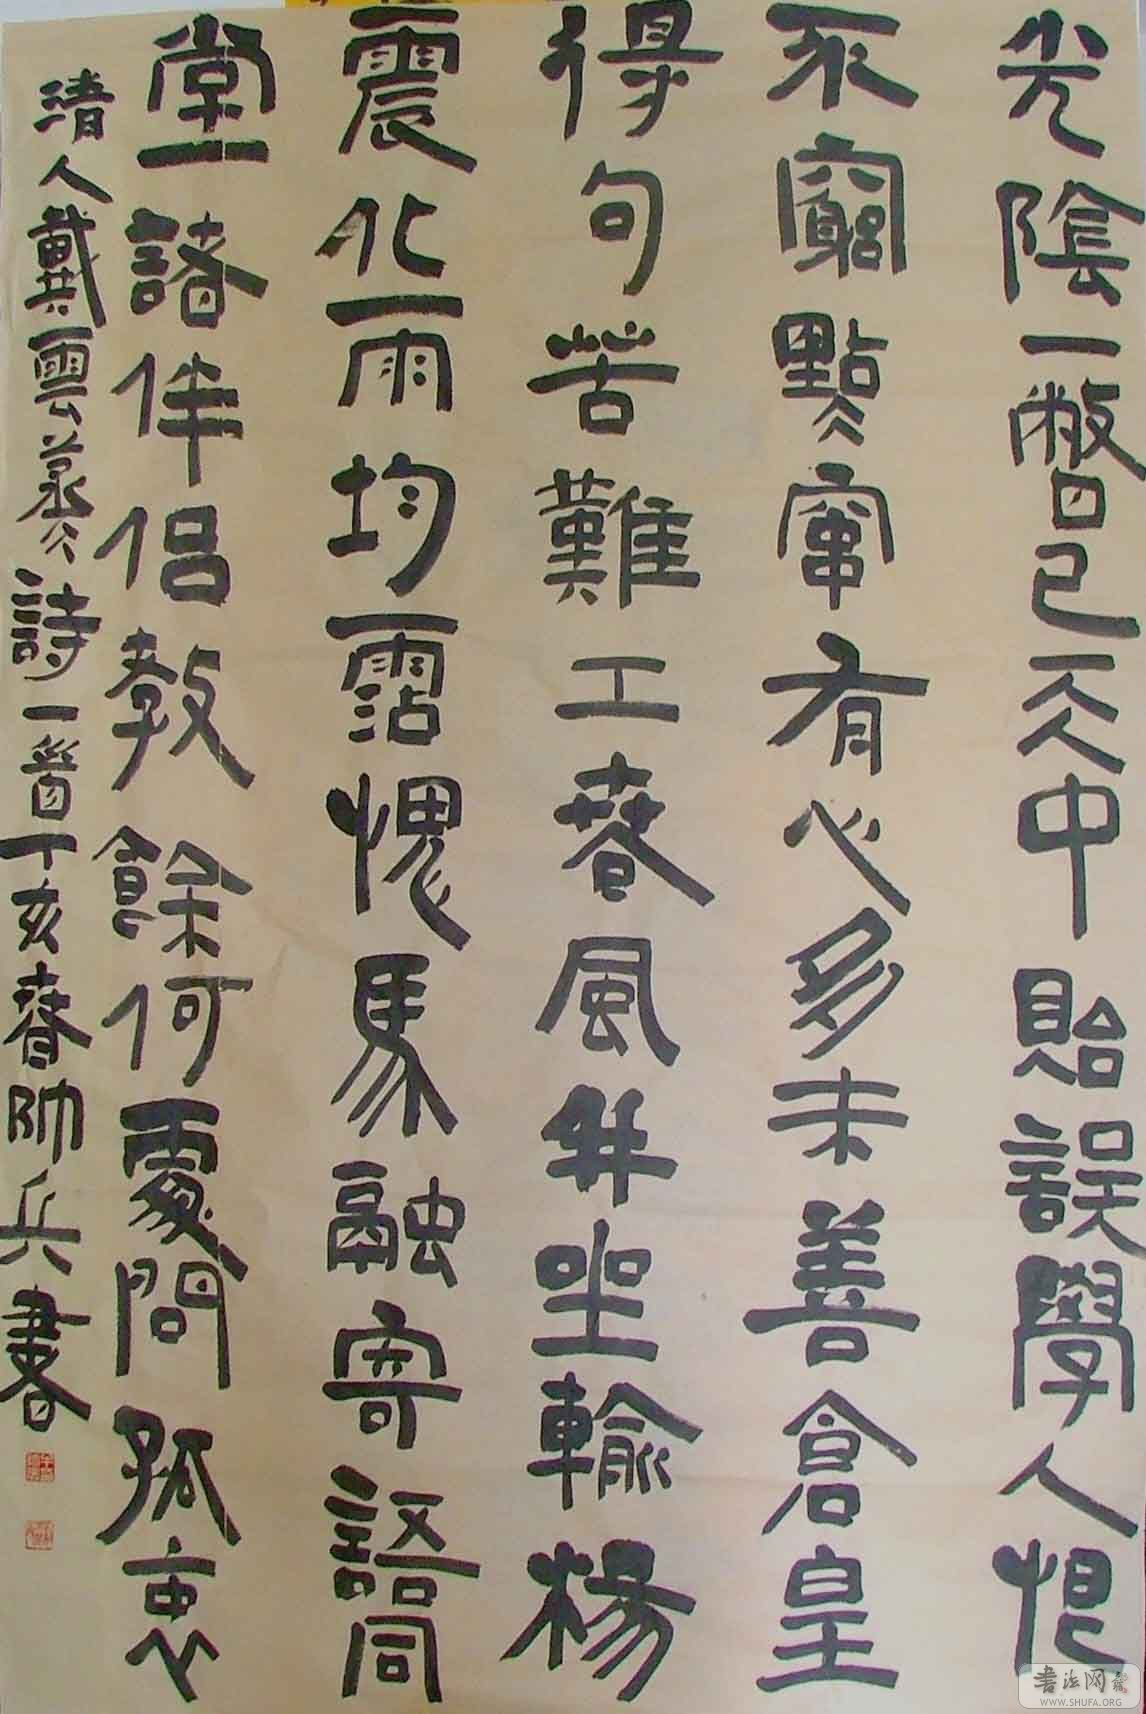 光陰一瞥已天中貽誤學人悞
不窮點竄有心多未善倉皇
得句苦難工春風井坐輸楊
震化雨均霑愧馬融寄語同
堂諸伴侶教餘何處問孤衷
清人戴雲蒸詩一首丁亥春帥兵書
书法网
WWW.SHUFA.ORG